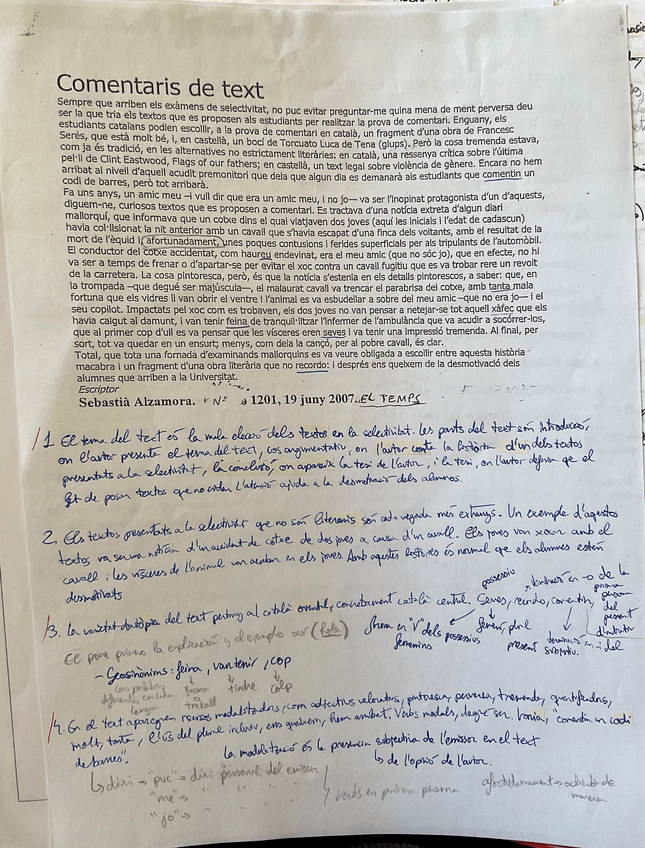 Comentaris de text
Sempre que arriben els exàmens de selectivitat, no puc evitar preguntar-me quina mena de ment perversa deu
ser la que tria els textos que es proposen als estudiants per realitzar la prova de comentari. Enguany, els
estudiants catalans podien escollir, a la prova de comentari en català, un fragment d'una obra de Francesc
Serés, que està molt bé, i, en castellà, un bocí de Torcuato Luca de Tena (glups). Però la cosa tremenda estava,
com ja és tradició, en les alternatives no estrictament literàries: en català, una ressenya crítica sobre l'última
pel·li de Clint Eastwood, Flags of our fathers; en castellà, un text legal sobre violència de gènere. Encara no hem
arribat al nivell d'aquell acudit premonitori que deia que algun dia es demanarà als estudiants que comentin un
codi de barres, però tot arribarà.
Fa uns anys, un amic meu –i vull dir que era un amic meu, i no jo– va ser l'inopinat protagonista d'un d'aquests,
diguem-ne, curiosos textos que es proposen a comentari. Es tractava d'una notícia extreta d'algun diari
mallorquí, que informava que un cotxe dins el qual viatjaven dos joves (aquí les inicials i l'edat de cadascun)
havia col·lisionat la nit anterior amb un cavall que s'havia escapat d'una finca dels voltants, amb el resultat de la
mort de l'èquid i, afortunadament, unes poques contusions i ferides superficials per als tripulants de l'automòbil.
El conductor del cotxe accidentat, com haureu endevinat, era el meu amic (que no sóc jo), que en efecte, no hi
va ser a temps de frenar o d'apartar-se per evitar el xoc contra un cavall fugitiu que es va trobar rere un revolt
de la carretera. La cosa pintoresca, però, és que la notícia s'estenia en els detalls pintorescos, a saber: que, en
la trompada –que degué ser majúscula–, el malaurat cavall va trencar el parabrisa del cotxe, amb tanta mala
fortuna que els vidres li van obrir el ventre i l'animal es va esbudellar a sobre del meu amic –que no era jo– i el
seu copilot. Impactats pel xoc com es trobaven, els dos joves no van pensar a netejar-se tot aquell xàfec que els
havia caigut al damunt, i van tenir feina de tranquil·litzar l'infermer de l'ambulància que va acudir a socórrer-los,
que al primer cop d'ull es va pensar que les vísceres eren seves i va tenir una impressió tremenda. Al final, per
sort, tot va quedar en un ensurt; menys, com deia la cançó, per al pobre cavall, és clar.
Total, que tota una fornada d'examinands mallorquins es va veure obligada a escollir entre aquesta història
macabra i un fragment d'una obra literària que no recordo: i després ens queixem de la desmotivació dels
alumnes que arriben a la Universitat.
Escriptor
Sebastià Alzamora. Nº 1201, 19 juny 2007. EL TEMPS
1. El tema del text és la mala elecció dels textos en la selectivitat. Les parts del text són introducció,
on l'autor presenta el tema del text, cos argumentatiu, on l'autor conta la història d'un dels textos
presentats a la selectivitat, la conclusió, on apareix la tesi de l'autor, i la tesi, on l'autor defensa que el
fet de posar textos que no criden l'atenció ajuda a la desmotivació dels alumnes.
2. Els textos presentats a la selectivitat que no són literaris són cada vegada més extranys. Un exemple d'aquestos
textos va ser una notícia d'un accident de cotxe de dos joves a causa d'un cavall. Els joves van xocar amb el
cavall i les vísceres de l'animal van acabar en els joves. Amb aquestes històries és normal que els alumnes estén
desmotivats.
3. La varietat dialectal del text pertany al català oriental, concretament català central. Seves, recordo, comentin,
possessiu
terminació en -o de la
primera
persona
del
present
d'indicatiu
forma en "V" dels possessius
femenins
femení, plural
present
subjuntiu.
terminació en -i del
El pone primero la explicación y el ejemplo así (foto)
- Geosinònims: feina, van tenir, cop
faena
treball
tindre
colp
4. En el text apareixen recursos modalitzadors, com adjectius valoratius, pintoresca, perversa, tremenda, quantificadors,
molt, tanta, l'ús del plural inclusiu, ens queixem, hem arribat. Verbs modals, degué ser. Ironia, comentin un codi
de barres".
la modalització és la presència subjectiva de l'emissor en el text
de l'opinió de l'autor.
dixi → "puc" → dixi personal del emissor
"me" →
"jo" →
verbs en primera persona
afortunadament → adverbi de
manera